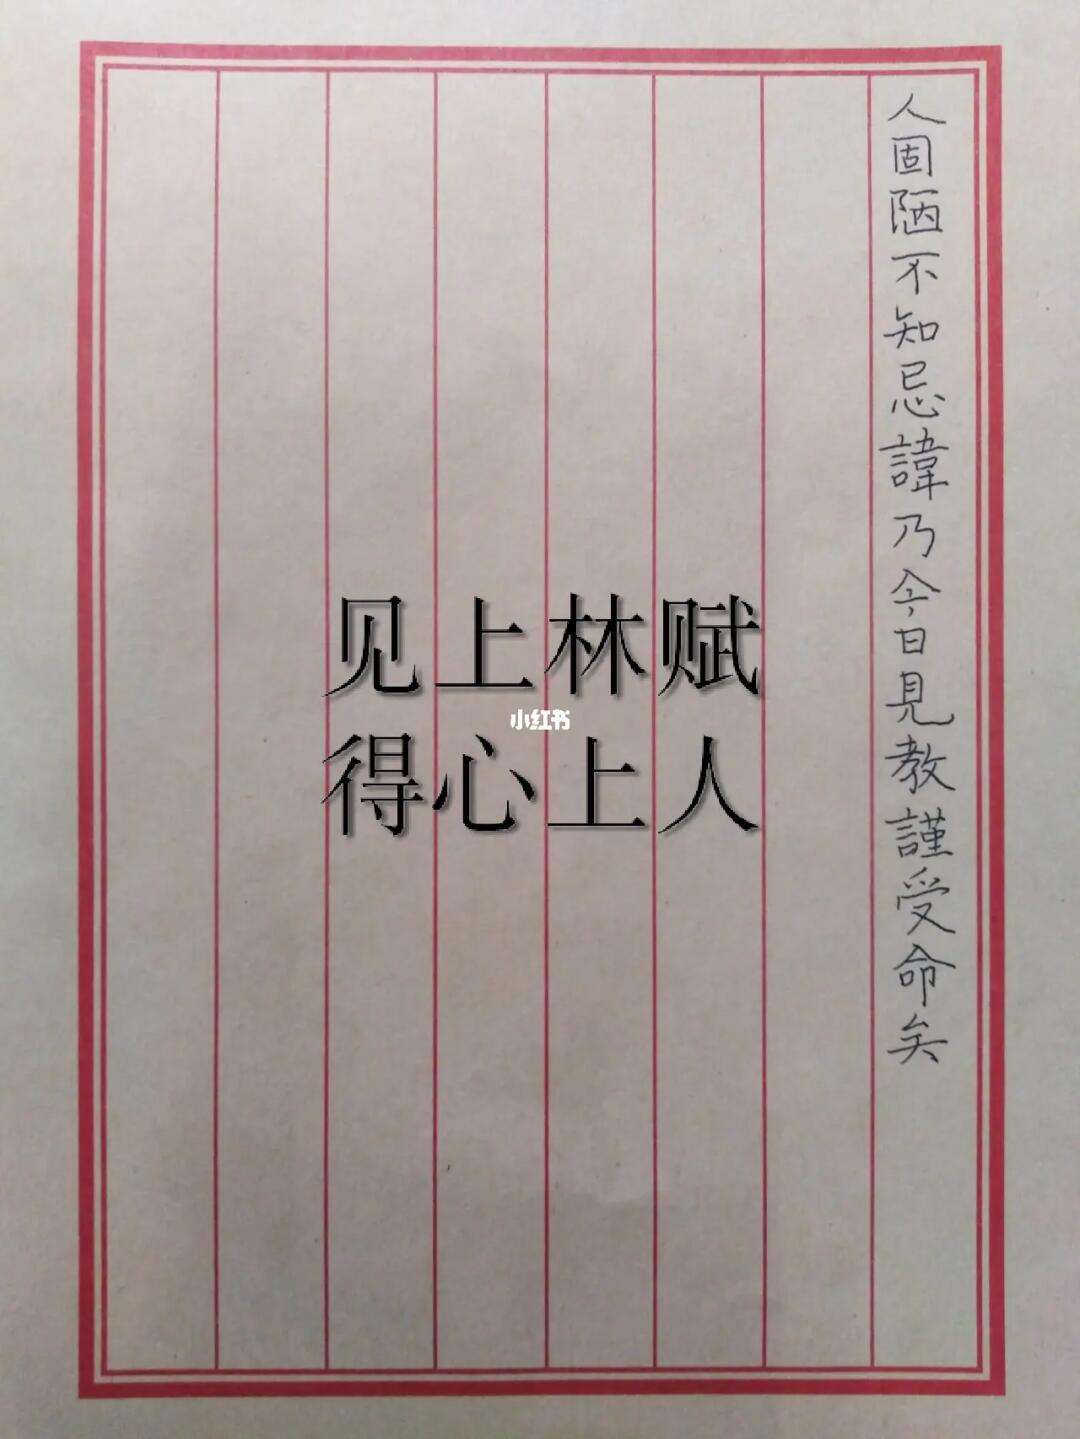 人固陋不知忌諱乃今日見教謹受命矣
见上林赋
小红书
得心上人